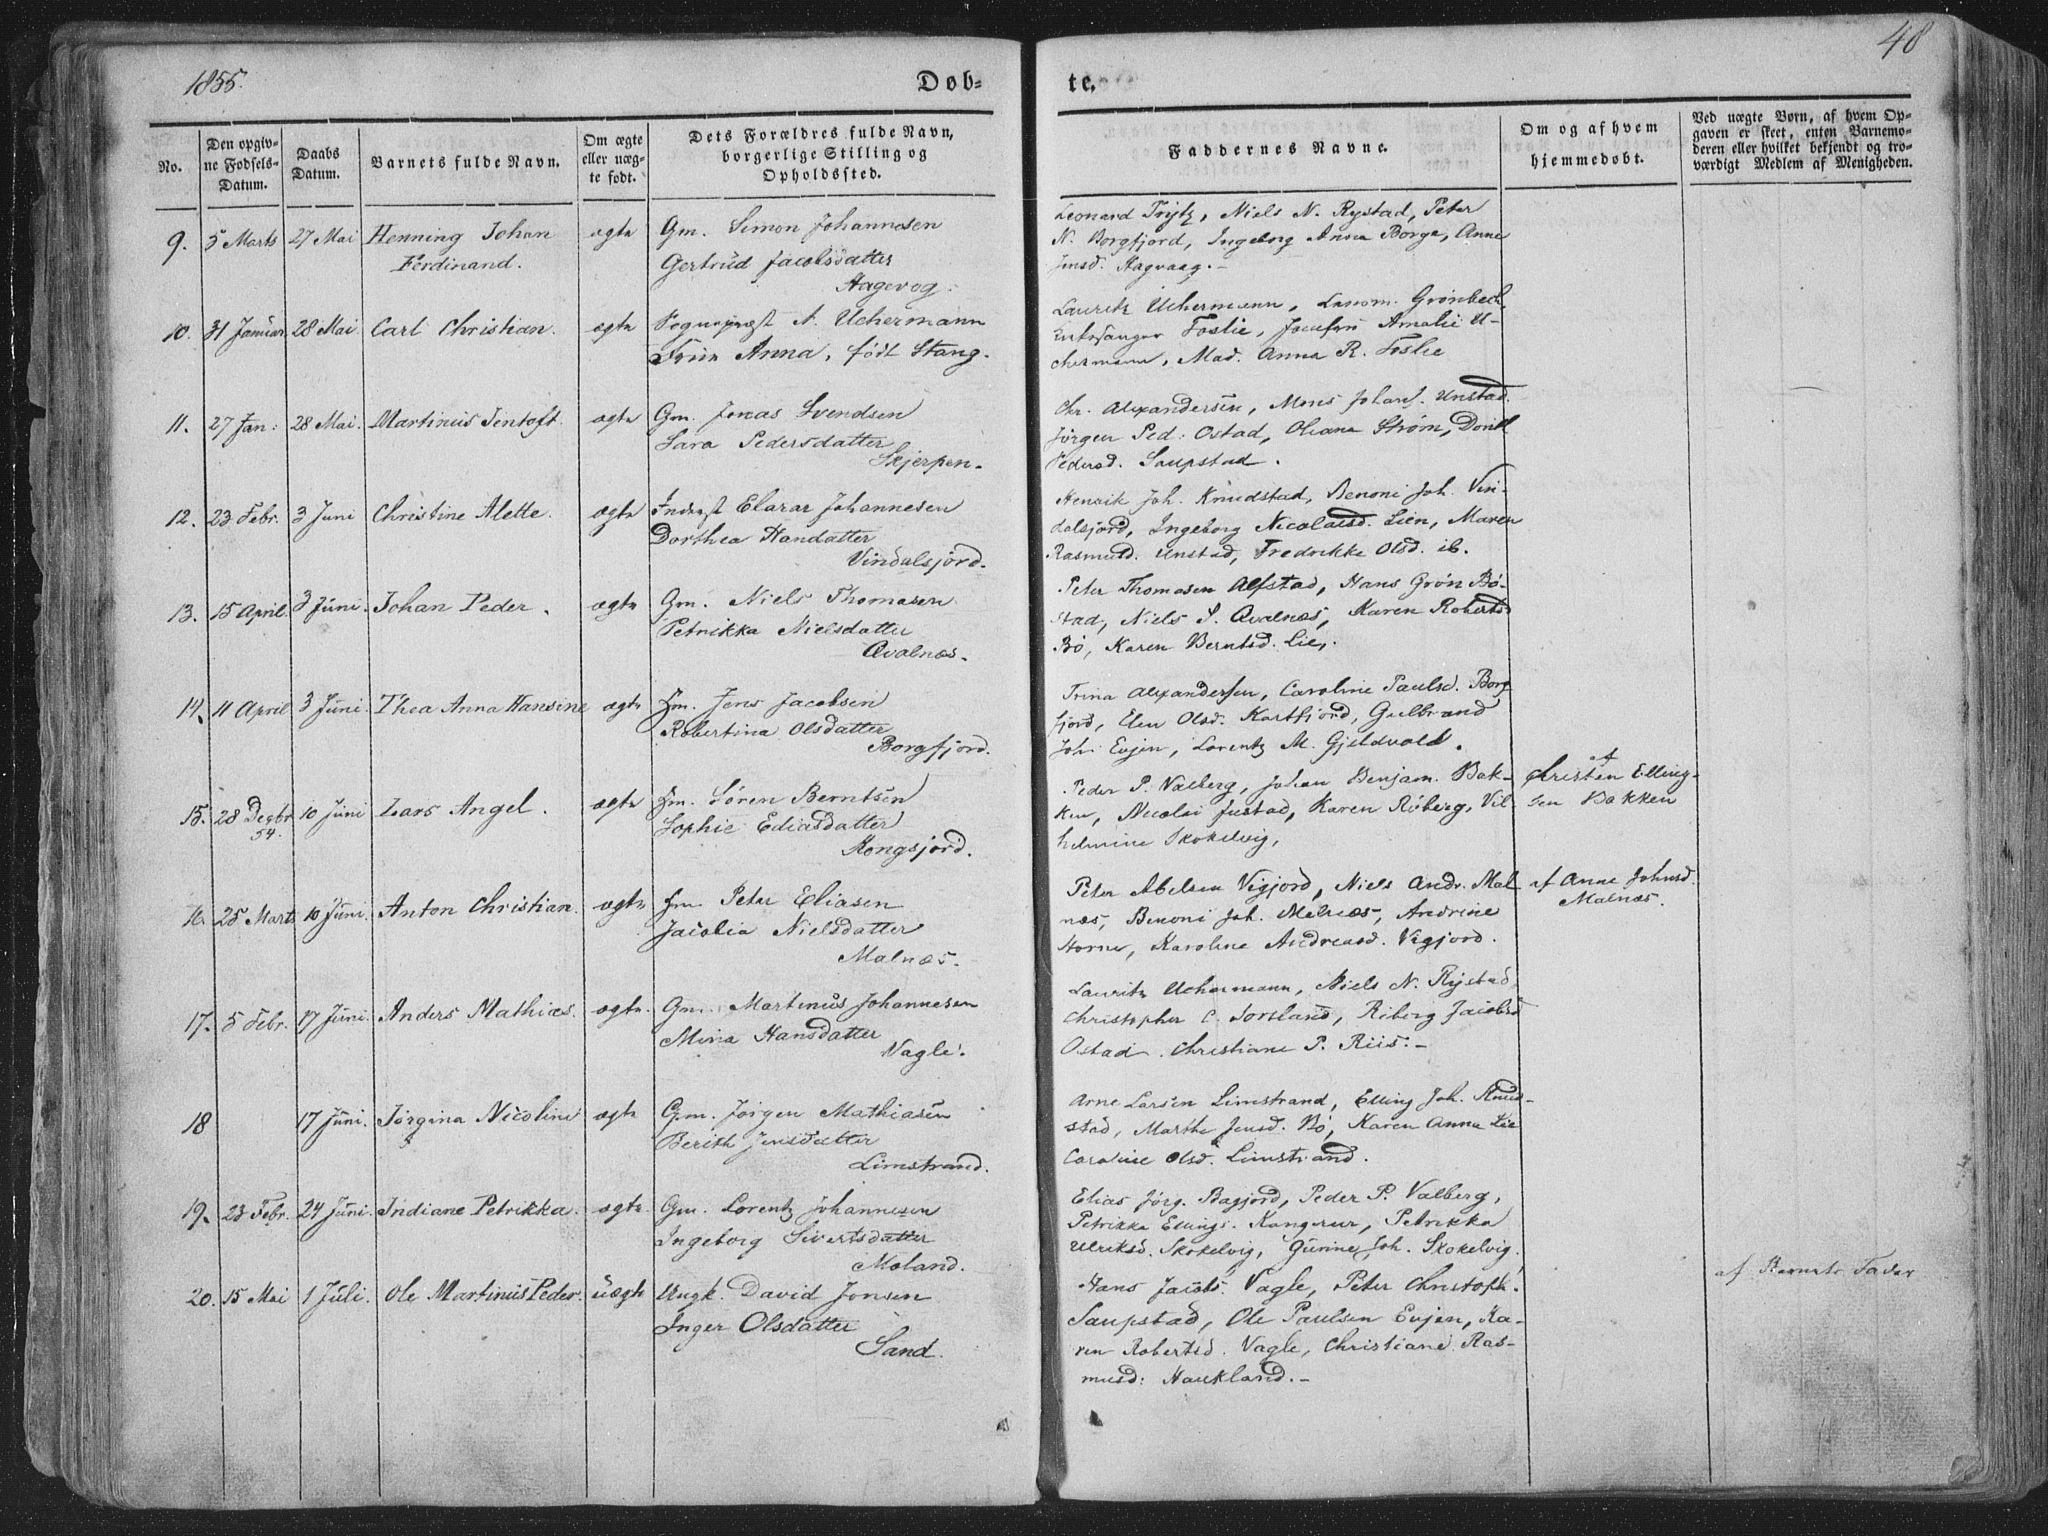 1855.
Døb-
te.
48
No.
Den opgiv-
ne Fødsels-
Datum.
Daabs
Datum.
Barnets fulde Navn.
Om ægte
eller uæg-
te født.
Dets Forældres fulde Navn,
borgerlige Stilling og
Opholdssted.
Faddernes Navne.
Om og af hvem
hjemmedøbt.
Ved uægte Børn, af hvem Op-
gaven er skeet, enten Barnemo-
deren eller hvilket bekjendt og tro-
værdigt Medlem af Menigheden.
9. 5 Marts 27 Mai Henning Johan ægte Gm. Simon Johannesen
Ferdinand. Gertrud Jacobsdatter
Hagevog.
Leonard Trytz, Niels N. Rystad, Peter
N. Borgfjord, Ingeborg Anna Borge, Anne
Jensd. Hagvaag.-
10. 31 Januar 28 Mai Carl Christian. ægte A. Uchermann
Frue Anna, født Stang.
Lauritz Uchermann, Grønbech
Foslie, Amalie U-
chermann, Mad. Anna R. Foslie
11. 27 Jan: 28 Mai. Martinus Tentoft. ægte Gm. Jonas Svendsen
Sara Pedersdatter
Skjerpen.
Chr. Alexandersen, Mons Johans. Unstad.
Jørgen Ped: Ostad, Oliana Strøm, Dorth
Pedersd. Saupstad.
12. 23 Febr. 3 Juni Christine Alette. ægte Inderst Elarar Johannesen
Dorthea Handatter
Vindalsjord.
Henrik Joh. Knudstad, Benoni Joh. Vin-
dalsjord, Ingeborg Nicolaisd. Lien, Maren
Rasmusd. Unstad, Fredrikke Olsd. ib.
13. 15 April. 3 Juni. Johan Peder. ægte Gm. Niels Thomasen
Petrikka Nielsdatter
Qvalnæs.
Peter Thomasen Alfstad, Hans Grøn Bø-
stad, Niels S. Qvalnæs, Karen Robertsd
Bø, Karen Berntsd. Lie.
14. 11 April 3 Juni. Thea Anna Hansine ægte Hm. Jens Jacobsen
Robertina Olsdatter
Borgfjord.
Trina Alexandersen, Caroline Paulsd. Borg
fjord, Elen Olsd. Kartfjord, Gulbrand
Joh. Evjen, Lorentz M. Gjeldvold.
15. 28 Decbr 10 Juni Lars Angel. ægte Hm. Søren Berntsen
54. Sophie Eliasdatter
Kongsjord.
Peder P. Valberg, Johan Benjam. Bak-
ken, Nicolai Justad, Karen Røberg, Vil-
helmine Skokelvig,
af
Christen Elling-
sen Bakken
16. 25 Marts 10 Juni. Anton Christian. ægte Hm Peter Eliasen
Jacobia Nielsdatter
Malnæs.
Peter Abelsen Vigjord, Niels Andr. Mal
næs, Benoni Joh. Melnæs, Andrine
Horne, Karoline Andreasd. Vigjord.
af Anne Johnsd.
Malnæs.
17. 5 Febr. 17 Juni. Anders Mathias. ægte. Gm. Martinus Johannesen
Mina Hansdatter
Vagle.
Lauritz Uchermann, Niels N. Rystad
Christopher C. Torsland, Riborg Jacobsd
Ostad. Christiane P. Riis.-
18 17 Juni. Jørgina Nicoline ægte Gm. Jørgen Mathiasen
Berith Jensdatter
Limstrand.
Arne Larsen Limstrand, Elling Joh. Knud-
stad, Marthe Jensd. Bø, Karen Anna Lie
Caroline Olsd. Limstrand.
19. 23 Febr. 24 Juni. Indiane Petrikka. ægte. Gm. Lorentz Johannesen
Ingeborg Sivertsdatter
Moland.
Elias Jørg. Bagjord, Peder P. Valberg,
Petrikka Ellings. Kangerur, Petrikka
Ulriksd. Skokelvig, Gurine Joh. Skokelvig.
20. 15 Mai 1 Juli. Ole Martinus Peder. uægte Ungk. David Jonsen
Inger Olsdatter
Sand.
Hans Jacobs. Vagle, Peter Christoph.
Saupstad, Ole Paulsen Evjen, Ka-
ren Robertsd. Vagle, Christiane Ras-
musd: Haukland.-
af Barnets Fader